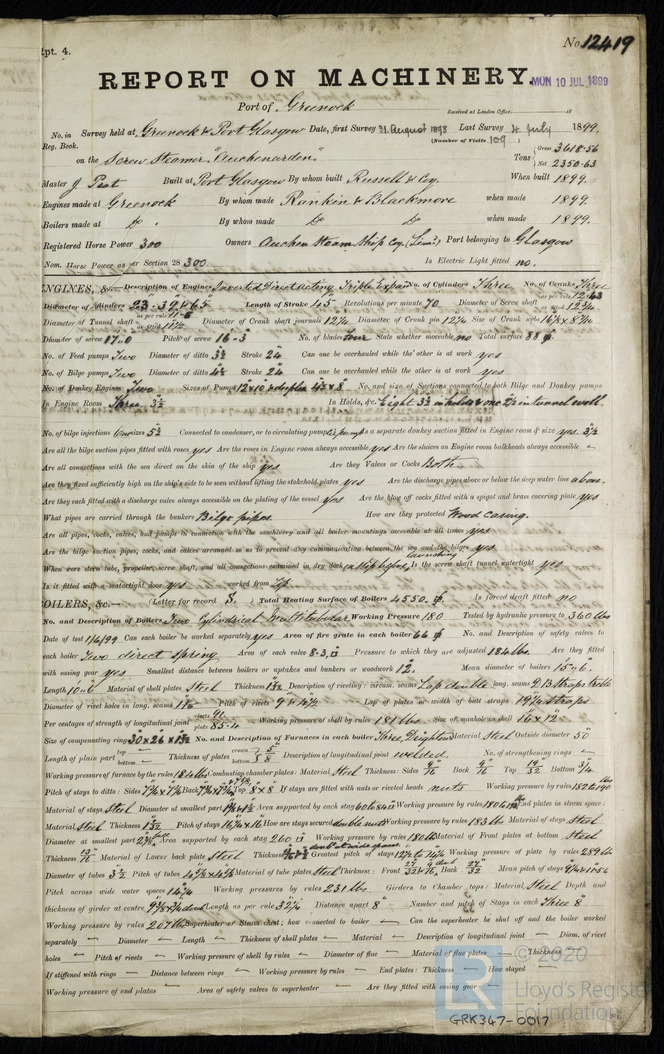 Rpt. 4.
No. 12419
REPORT ON MACHINERY.
MON 10 JUL 1899
Port of Greenock
Received at London Office 18
No. in Survey held at Greenock & Port Glasgow Date, first Survey 31 August 1898 Last Survey 4 July 1899
Reg. Book. (Number of Visits 109)
on the Screw Steamer "Auchenarden" Tons Gross 3618.56 Net 2350.63
Master J Peat Built at Port Glasgow By whom built Russell & Coy. When built 1899.
Engines made at Greenock By whom made Rankin & Blackmore when made 1899.
Boilers made at Do. By whom made Do Do when made 1899.
Registered Horse Power 300 Owners Auchen Steam Ship Coy. (Limd) Port belonging to Glasgow
Nom. Horse Power as per Section 28 300. Is Electric Light fitted no.
ENGINES, &c.— Description of Engines Inverted Direct Acting Triple Expan No. of Cylinders Three No. of Cranks Three
Diameter of Cylinders 23-39 & 65" Length of Stroke 45 Revolutions per minute 70 Diameter of Screw shaft as per rule 12.63
Diameter of Tunnel shaft Diameter of Crank shaft journals 12¾ Diameter of Crank pin 12¾ Size of Crank webs
Diameter of screw 17.0 Pitch of screw 16-3 No. of blades four State whether moveable no Total surface 88
No. of Feed pumps Two Diameter of ditto Stroke 24 Can one be overhauled while the other is at work yes
No. of Bilge pumps Two Diameter of ditto Stroke 24 Can one be overhauled while the other is at work yes
No. of Donkey Engines Two Sizes of Pumps No. and size of Suctions connected to both Bilge and Donkey pumps
In Engine Room Three 3½ In Holds, &c. Eight 3½ in holds & one 2½ in tunnel well
No. of bilge injections one sizes 5½ Connected to condenser, or to circulating pump Is a separate donkey suction fitted in Engine room & size yes. 3½
Are all the bilge suction pipes fitted with roses yes Are the roses in Engine room always accessible yes Are the sluices on Engine room bulkheads always accessible —
Are all connections with the sea direct on the skin of the ship yes Are they Valves or Cocks Both
Are they fixed sufficiently high on the ship's side to be seen without lifting the stokehold plates yes Are the discharge pipes above or below the deep water line above.
Are they each fitted with a discharge valve always accessible on the plating of the vessel yes Are the blow off cocks fitted with a spigot and brass covering plate yes
What pipes are carried through the bunkers Bilge pipes How are they protected Wood casing.
Are all pipes, cocks, valves, and pumps in connection with the machinery and all boiler mountings accessible at all times yes
Are the bilge suction pipes, cocks, and valves arranged so as to prevent any communication between the sea and the bilges yes
When were stern tube, propeller, screw shaft, and all connections examined in dry dock on slip before launching Is the screw shaft tunnel watertight yes
Is it fitted with a watertight door yes worked from Top
BOILERS, &c.— (Letter for record S.) Total Heating Surface of Boilers 4550 Is forced draft fitted no
No. and Description of Boilers Two Cylindrical Multitubular Working Pressure 180 Tested by hydraulic pressure to 360 lbs
Date of test 1/6/99 Can each boiler be worked separately yes Area of fire grate in each boiler 66 No. and Description of safety valves to
each boiler Two direct spring Area of each valve 8.3 Pressure to which they are adjusted 184 lbs. Are they fitted
with easing gear yes Smallest distance between boilers or uptakes and bunkers or woodwork 12 Mean diameter of boilers 15-6.
Length 10-6 Material of shell plates Steel Thickness Description of riveting: circum. seams Lap double long. seams
Diameter of rivet holes in long. seams Pitch of rivets Lap of plates or width of butt straps 19¼ straps
Per centages of strength of longitudinal joint rivets plate 85.4 Working pressure of shell by rules 181 lbs Size of manhole in shell 16 × 12
Size of compensating ring No. and Description of Furnaces in each boiler Three, Deighton Material Steel Outside diameter
Length of plain part top bottom Thickness of plates crown bottom Description of longitudinal joint welded. No. of strengthening rings —
Working pressure of furnace by the rules 184 lbs Combustion chamber plates: Material Steel Thickness: Sides 9/16 Back 9/16 Top 19/32 Bottom 3/4
Pitch of stays to ditto: Sides Back Top 8 × 8 If stays are fitted with nuts or riveted heads nuts Working pressure by rules
Material of stays Steel Diameter at smallest part Area supported by each stay Working pressure by rules End plates in steam space:
Material Steel Thickness Pitch of stays How are stays secured double nuts Working pressure by rules 183 lbs Material of stays Steel
Diameter at smallest part Area supported by each stay 260 Working pressure by rules 180 lbs Material of Front plates at bottom Steel
Thickness Material of Lower back plate Steel Thickness Greatest pitch of stays Working pressure of plate by rules 289 lbs
Diameter of tubes 3½ Pitch of tubes Material of tube plates Steel Thickness: Front Back Mean pitch of stays
Pitch across wide water spaces 14¼ Working pressures by rules 231 lbs. Girders to Chamber tops: Material Steel Depth and
thickness of girder at centre Length as per rule Distance apart 8" Number and pitch of Stays in each Three 8
Working pressure by rules 207 lbs Superheater or Steam chest; how connected to boiler — Can the superheater be shut off and the boiler worked
separately — Diameter — Length — Thickness of shell plates — Material — Description of longitudinal joint — Diam. of rivet
holes — Pitch of rivets — Working pressure of shell by rules — Diameter of flue — Material of flue plates — Thickness
If stiffened with rings — Distance between rings — Working pressure by rules — End plates: Thickness How stayed
Working pressure of end plates — Area of safety valves to superheater — Are they fitted with easing gear —
© 2020
Lloyd's Register
Foundation
LR
GRK347-0017